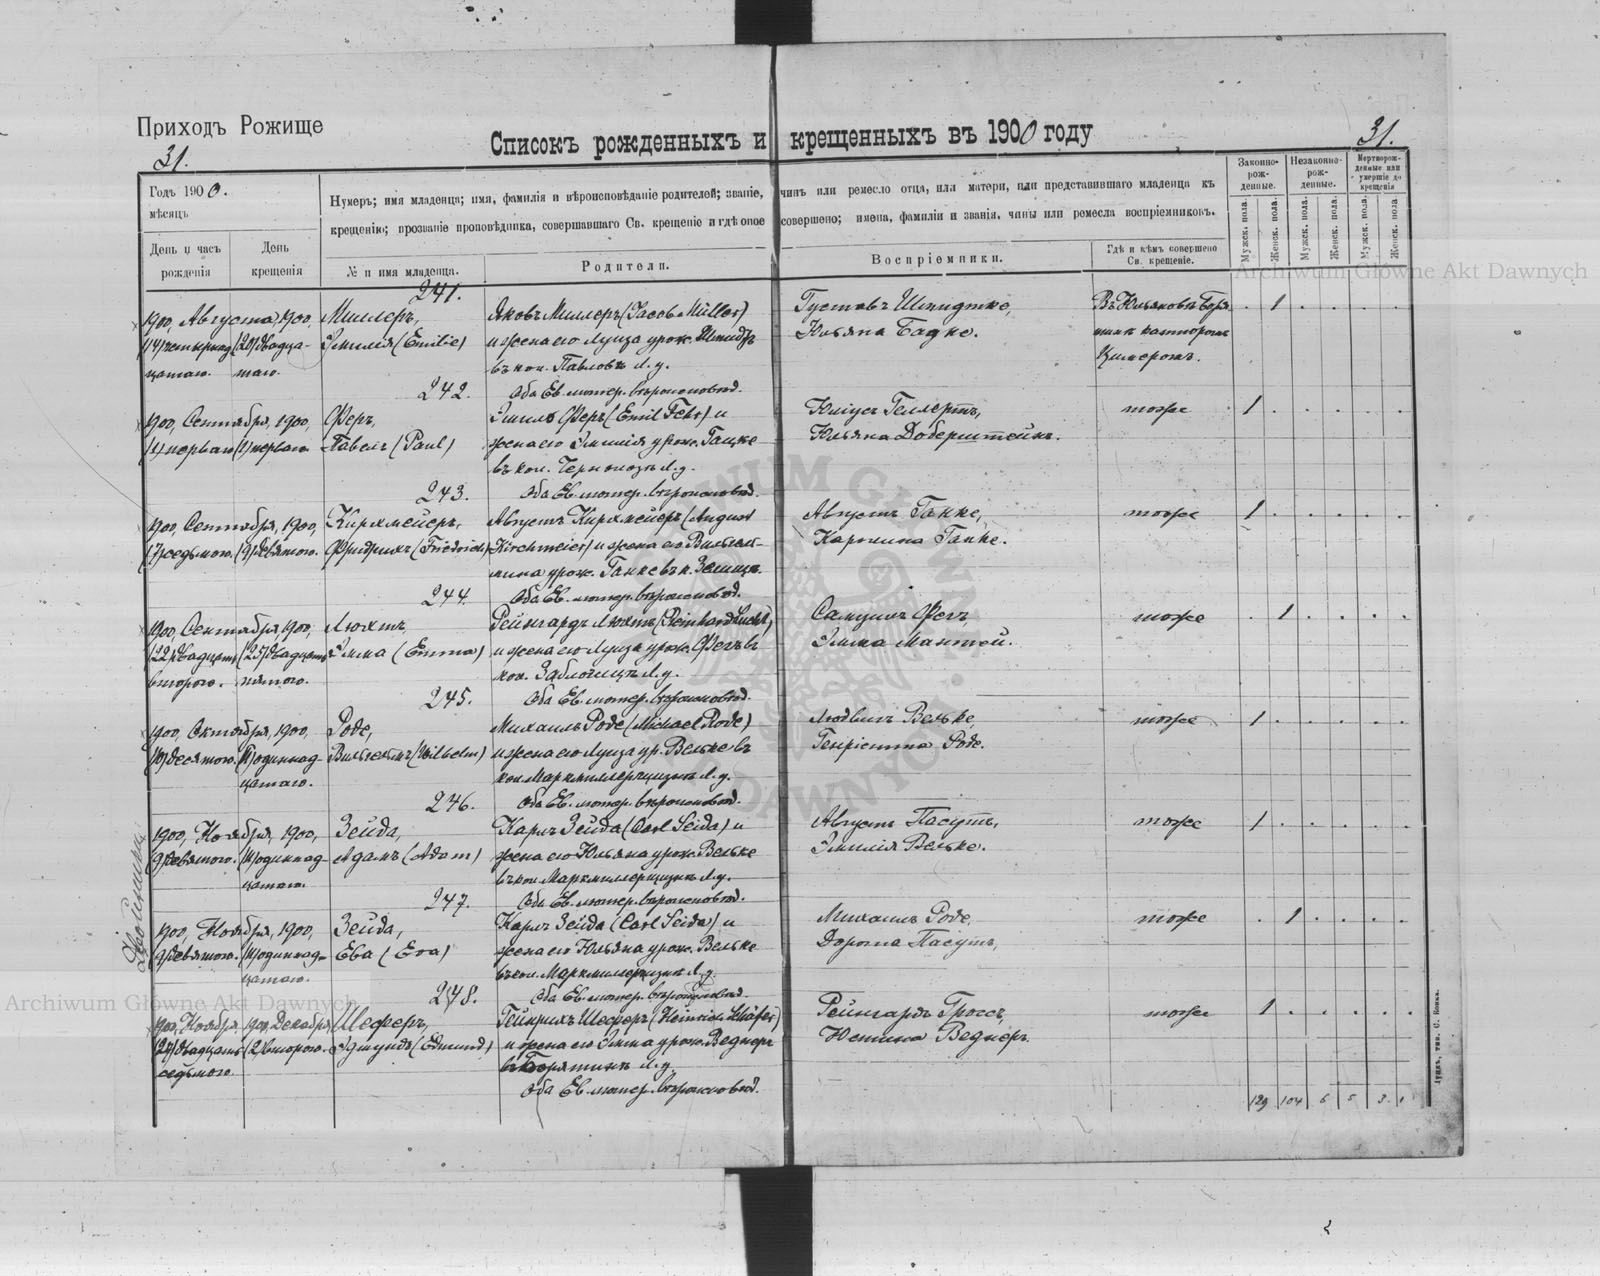 Приходъ Рожище
31.
Списокъ рожденныхъ и крещенныхъ въ 1900 году
31.
Годъ 1900.
мѣсяцъ
День и часъ рожденія
День крещенія
Нумеръ; имя младенца; имя, фамилія и вѣроисповѣданіе родителей; званіе, чинъ или ремесло отца, или матери, или представившаго младенца къ
крещенію; прозваніе проповѣдника, совершавшаго Св. крещеніе и гдѣ оное совершено; имена, фамиліи и званія, чины или ремесла воспріемниковъ.
№ и имя младенца.
Родители.
Воспріемники.
Гдѣ и кѣмъ совершено Св. крещеніе.
Законно-рож-денные.
Незаконно-рож-денные.
Мертворож-денные или умершіе до крещенія
Мужск. пола.
Женск. пола.
Мужск. пола.
Женск. пола.
Мужск. пола.
Женск. пола.
Archiwum Główne Akt Dawnych
241.
1900, Августа, 1900, Миллеръ, Яковъ Миллеръ (Jacob Müller) Густавъ Шмидтке, . 1 . . . .
(14) четырнад (20) двадца- Эмилія (Emilie) и жена его Луиза урож. Шмидтъ Юльяна Бадке.
цатаго. таго. въ кол. Павловкѣ Л. у.
242. Оба Ев. лютер. вѣроисповѣд.
1900, Сентября, 1900, Феръ, Эмиль Феръ (Emil Fehr) и Юліусъ Геллертъ, тоже 1 . . . . .
(1) перваго (1) перваго Павелъ (Paul) жена его Эмилія урож. Гацке Юльяна Доберштейнъ.
въ кол. Л. у.
243. Оба Ев. лютер. вѣроисповѣд.
1900, Сентября, 1900, Кирхмейеръ, Августъ Кирхмейеръ (August Августъ Ганке, тоже 1 . . . . .
(7) седьмого. (9) девятого. Фридрихъ (Friedrich) Kirchmeier) и жена его Вильгель- Каролина Ганке.
мина урож. Ганке въ к.
244. Оба Ев. лютер. вѣроисповѣд.
1900, Сентября 1900, Люхтъ, Рейнгардъ Люхтъ (Reinhard Lucht) Самуилъ Фегъ, тоже . 1 . . . .
(22) двадцать (25) двадцать Эмма (Emma) и жена его Луиза урож. Фегъ въ Эмма Мантой.
второго. пятого. кол. Заболотцы Л. у.
245. Оба Ев. лютер. вѣроисповѣд.
1900, Октября, 1900, Роде, Михаилъ Роде (Michael Rode) Людвигъ Вельке, тоже 1 . . . . .
(10) десятого. (11) одиннад- Вильгельмъ (Wilhelm) и жена его Луиза ур. Вельке въ Генріетта Роде.
цатаго. кол. Л. у.
246. Оба Ев. лютер. вѣроисповѣд.
1900, Ноября, 1900, Зейда, Карлъ Зейда (Carl Seida) и Августъ Пасутъ, тоже 1 . . . . .
(9) девятого. (11) одиннад- Адамъ (Adam) жена его Юльяна урож. Вельке Эмилія Вельке.
цатаго. въ кол. Л. у.
247. Оба Ев. лютер. вѣроисповѣд.
1900, Ноября, 1900, Зейда, Карлъ Зейда (Carl Seida) и Михаилъ Роде, тоже . 1 . . . .
(9) девятого. (11) одиннад- Ева (Eva) жена его Юльяна урож. Вельке Дорота Пасутъ,
цатаго. въ кол. Л. у.
248. Оба Ев. лютер. вѣроисповѣд.
1900, Ноября, 1900, Декабря Шеферъ, Гейнрихъ Шеферъ (Heinrich Schäfer) Рейнгардъ Гроссъ, тоже 1 . . . . .
(27) двадцать (2) второго. Эдмундъ (Edmund) и жена его Эмма урож. Веднеръ Юстина Веднеръ.
седьмого. въ Борятинѣ Л. у.
Оба Ев. лютер. вѣроисповѣд.
129 104 6 5 3 1
Archiwum Główne Akt Dawnych